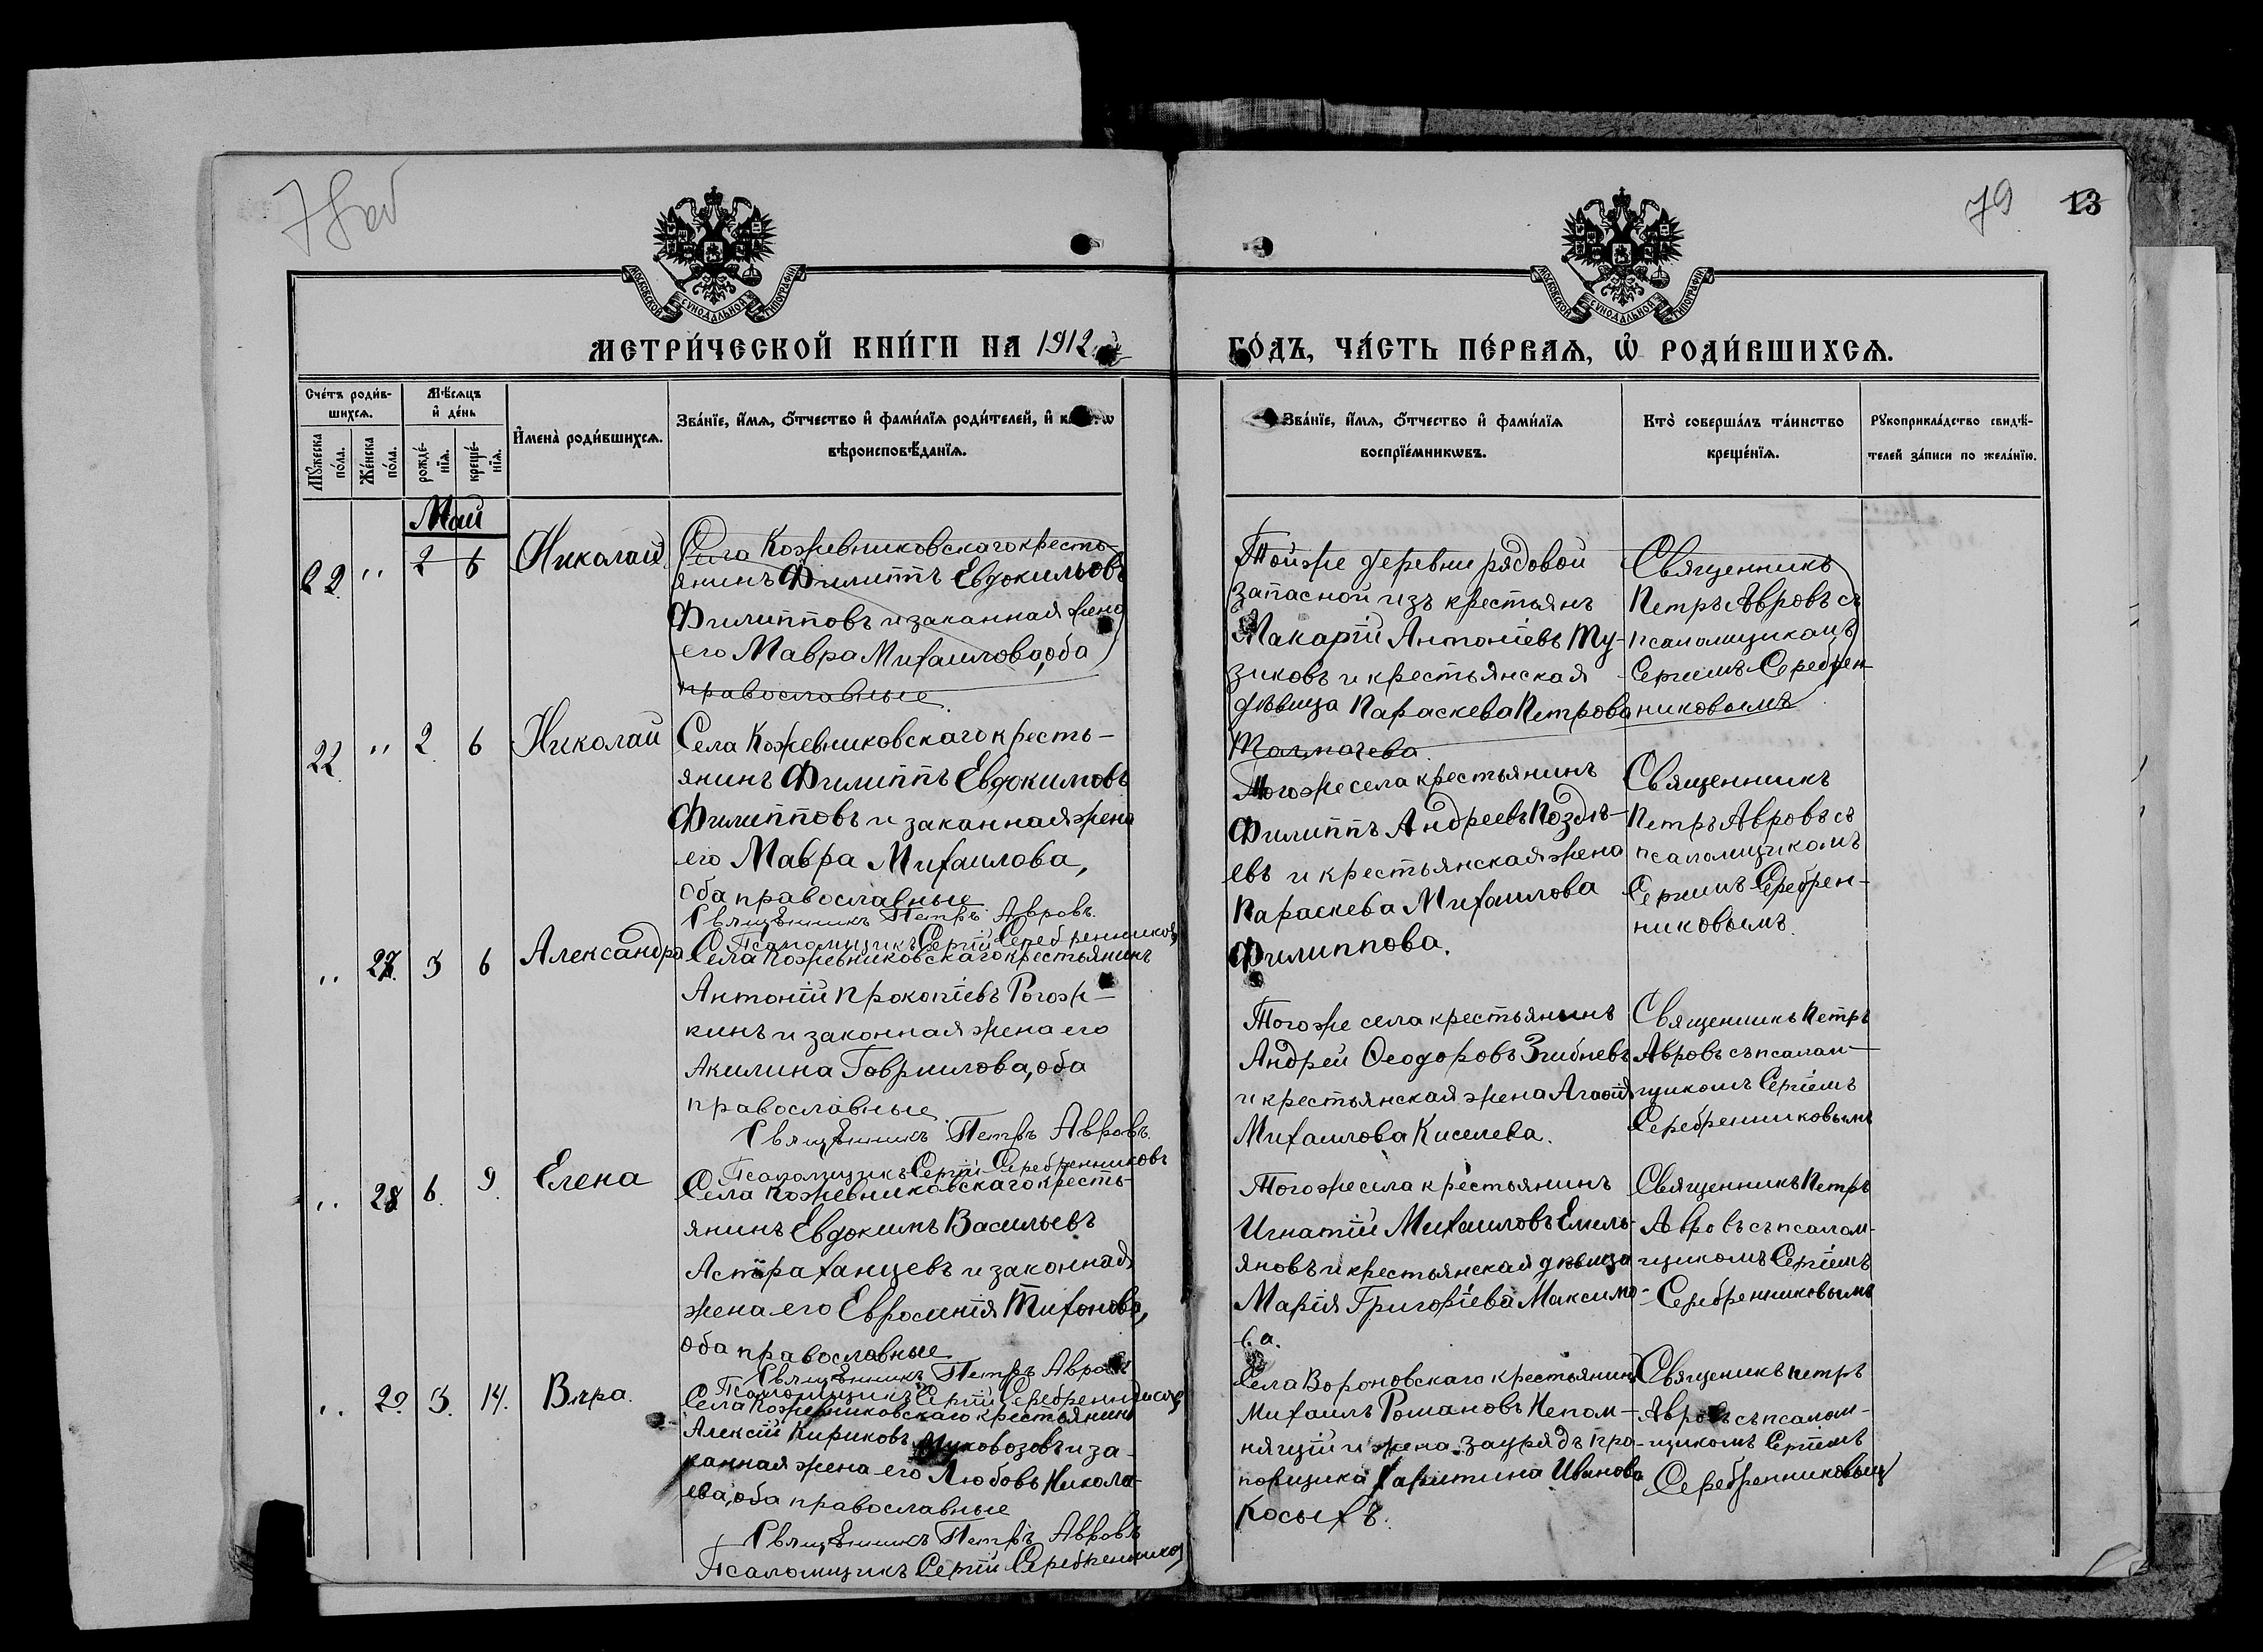 78об
79 13
МОСКОВСКОЙ СУНОДАЛЬНОЙ ТИПОГРАФІИ
МОСКОВСКОЙ СУНОДАЛЬНОЙ ТИПОГРАФІИ
МЕТРИ́ЧЕСКОЙ КНИ́ГИ НА 1912
ГО́ДЪ, ЧА́СТЬ ПЕ́РВАЯ, Ѡ РОДИ́ВШИХСЯ.
Сче́тъ роди́в-
шихся.
Мѣ́сяцъ
и де́нь
Му́жеска
по́ла.
Же́нска
по́ла.
рожде́-
нія.
креще́-
нія.
Имена̀ роди́вшихся.
Зва́ніе, и́мя, о́тчество и фами́лія роди́телей, и
вѣроисповѣ́данія.
Зва́ніе, и́мя, о́тчество и фами́лія
воспріе́мникωвъ.
Кто̀ соверша́лъ та́инство
креще́нія.
Рукоприкла́дство свидѣ́-
телей за́писи по жела́нію.
Май
22. " 2 6 Николай
Села Кожевниковскаго кресть-
янинъ Филиппъ Евдокимовъ
Филипповъ и законная жена
его Мавра Михаилова, оба
православные.
Тойже деревни рядовой
запасной изъ крестьянъ
Макарій Антоніевъ Му-
зиковъ и крестьянская
дѣвица Параскева Петрова
Толмачева
Священникъ
Петръ Авровъ съ
псаломщикомъ
Сергіемъ Серебрен-
никовымъ
22. " 2. 6 Николай
Села Кожевниковскаго кресть-
янинъ Филиппъ Евдокимовъ
Филипповъ и законная жена
его Мавра Михаилова,
оба православные
Священникъ Петръ Авровъ.
Псаломщикъ Сергій Серебренниковъ
Тогоже села крестьянинъ
Филиппъ Андреевъ Поздѣ-
евъ и крестьянская жена
Параскева Михаилова
Филиппова.
Священникъ
Петръ Авровъ съ
псаломщикомъ
Сергіемъ Серебрен-
никовымъ.
" 27. 3 6 Александра
Села Кожевниковскаго крестьянинъ
Антоній Прокопіевъ Рогож-
кинъ и законная жена его
Акилина Гавриилова, оба
православные
Священникъ Петръ Авровъ.
Псаломщикъ Сергій Серебренниковъ
Тогоже села крестьянинъ
Андрей Ѳеодоровъ Згибневъ
и крестьянская жена Агаѳія
Михаилова Киселева.
Священникъ Петръ
Авровъ съ псалом-
щикомъ Сергіемъ
Серебренниковымъ
" 28 6. 9. Елена
Села Кожевниковскаго кресть-
янинъ Евдокимъ Васильевъ
Астраханцевъ и законная
жена его Евросинія Тихонова,
оба православные
Священникъ Петръ Авровъ
Псаломщикъ Сергій Серебренниковъ
Тогоже села крестьянинъ
Игнатій Михаиловъ Емель-
яновъ и крестьянская дѣвица
Марія Григоріева Максимо-
ва.
Священникъ Петръ
Авровъ съ псалом-
щикомъ Сергіемъ
Серебренниковымъ
" 29. 3. 14. Вѣра.
Села Кожевниковскаго крестьянинъ
Алексій Кириковъ Муковозовъ и за-
конная жена его Любовь Никола-
ева, оба православные
Священникъ Петръ Авровъ
Псаломщикъ Сергій Серебренниковъ
Села Вороновскаго крестьянинъ
Михаилъ Романовъ Непом-
нящій и жена зауряд пра-
порщика Харитина Иванова
Косыхъ.
Священикъ Петръ
Авровъ съ псалом-
щикомъ Сергіемъ
Серебренниковымъ